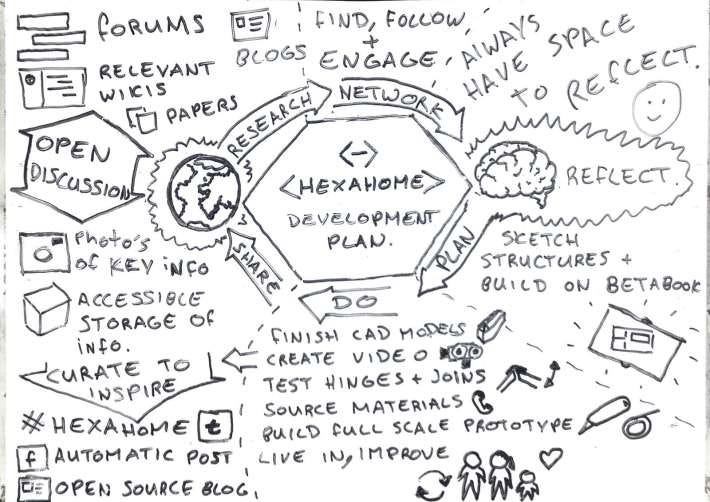 FORUMS
BLOGS
RELEVANT
WIKIS
PAPERS
FIND, FOLLOW
+
ENGAGE
ALWAYS
HAVE SPACE
TO REFLECT.
RESEARCH
NETWORK
OPEN
DISCUSSION
<->
<HEXAHOME>
DEVELOPMENT
PLAN.
REFLECT.
PLAN
DO
SHARE
SKETCH
STRUCTURES +
BUILD ON BETABOOK
PHOTO'S
OF KEY INFO
ACCESSIBLE
STORAGE OF
INFO.
CURATE TO
INSPIRE
# HEXAHOME t
f AUTOMATIC POST
OPEN SOURCE BLOG.
FINISH CAD MODELS
CREATE VIDEO
TEST HINGES + JOINS
SOURCE MATERIALS
BUILD FULL SCALE PROTOTYPE
LIVE IN, IMPROVE